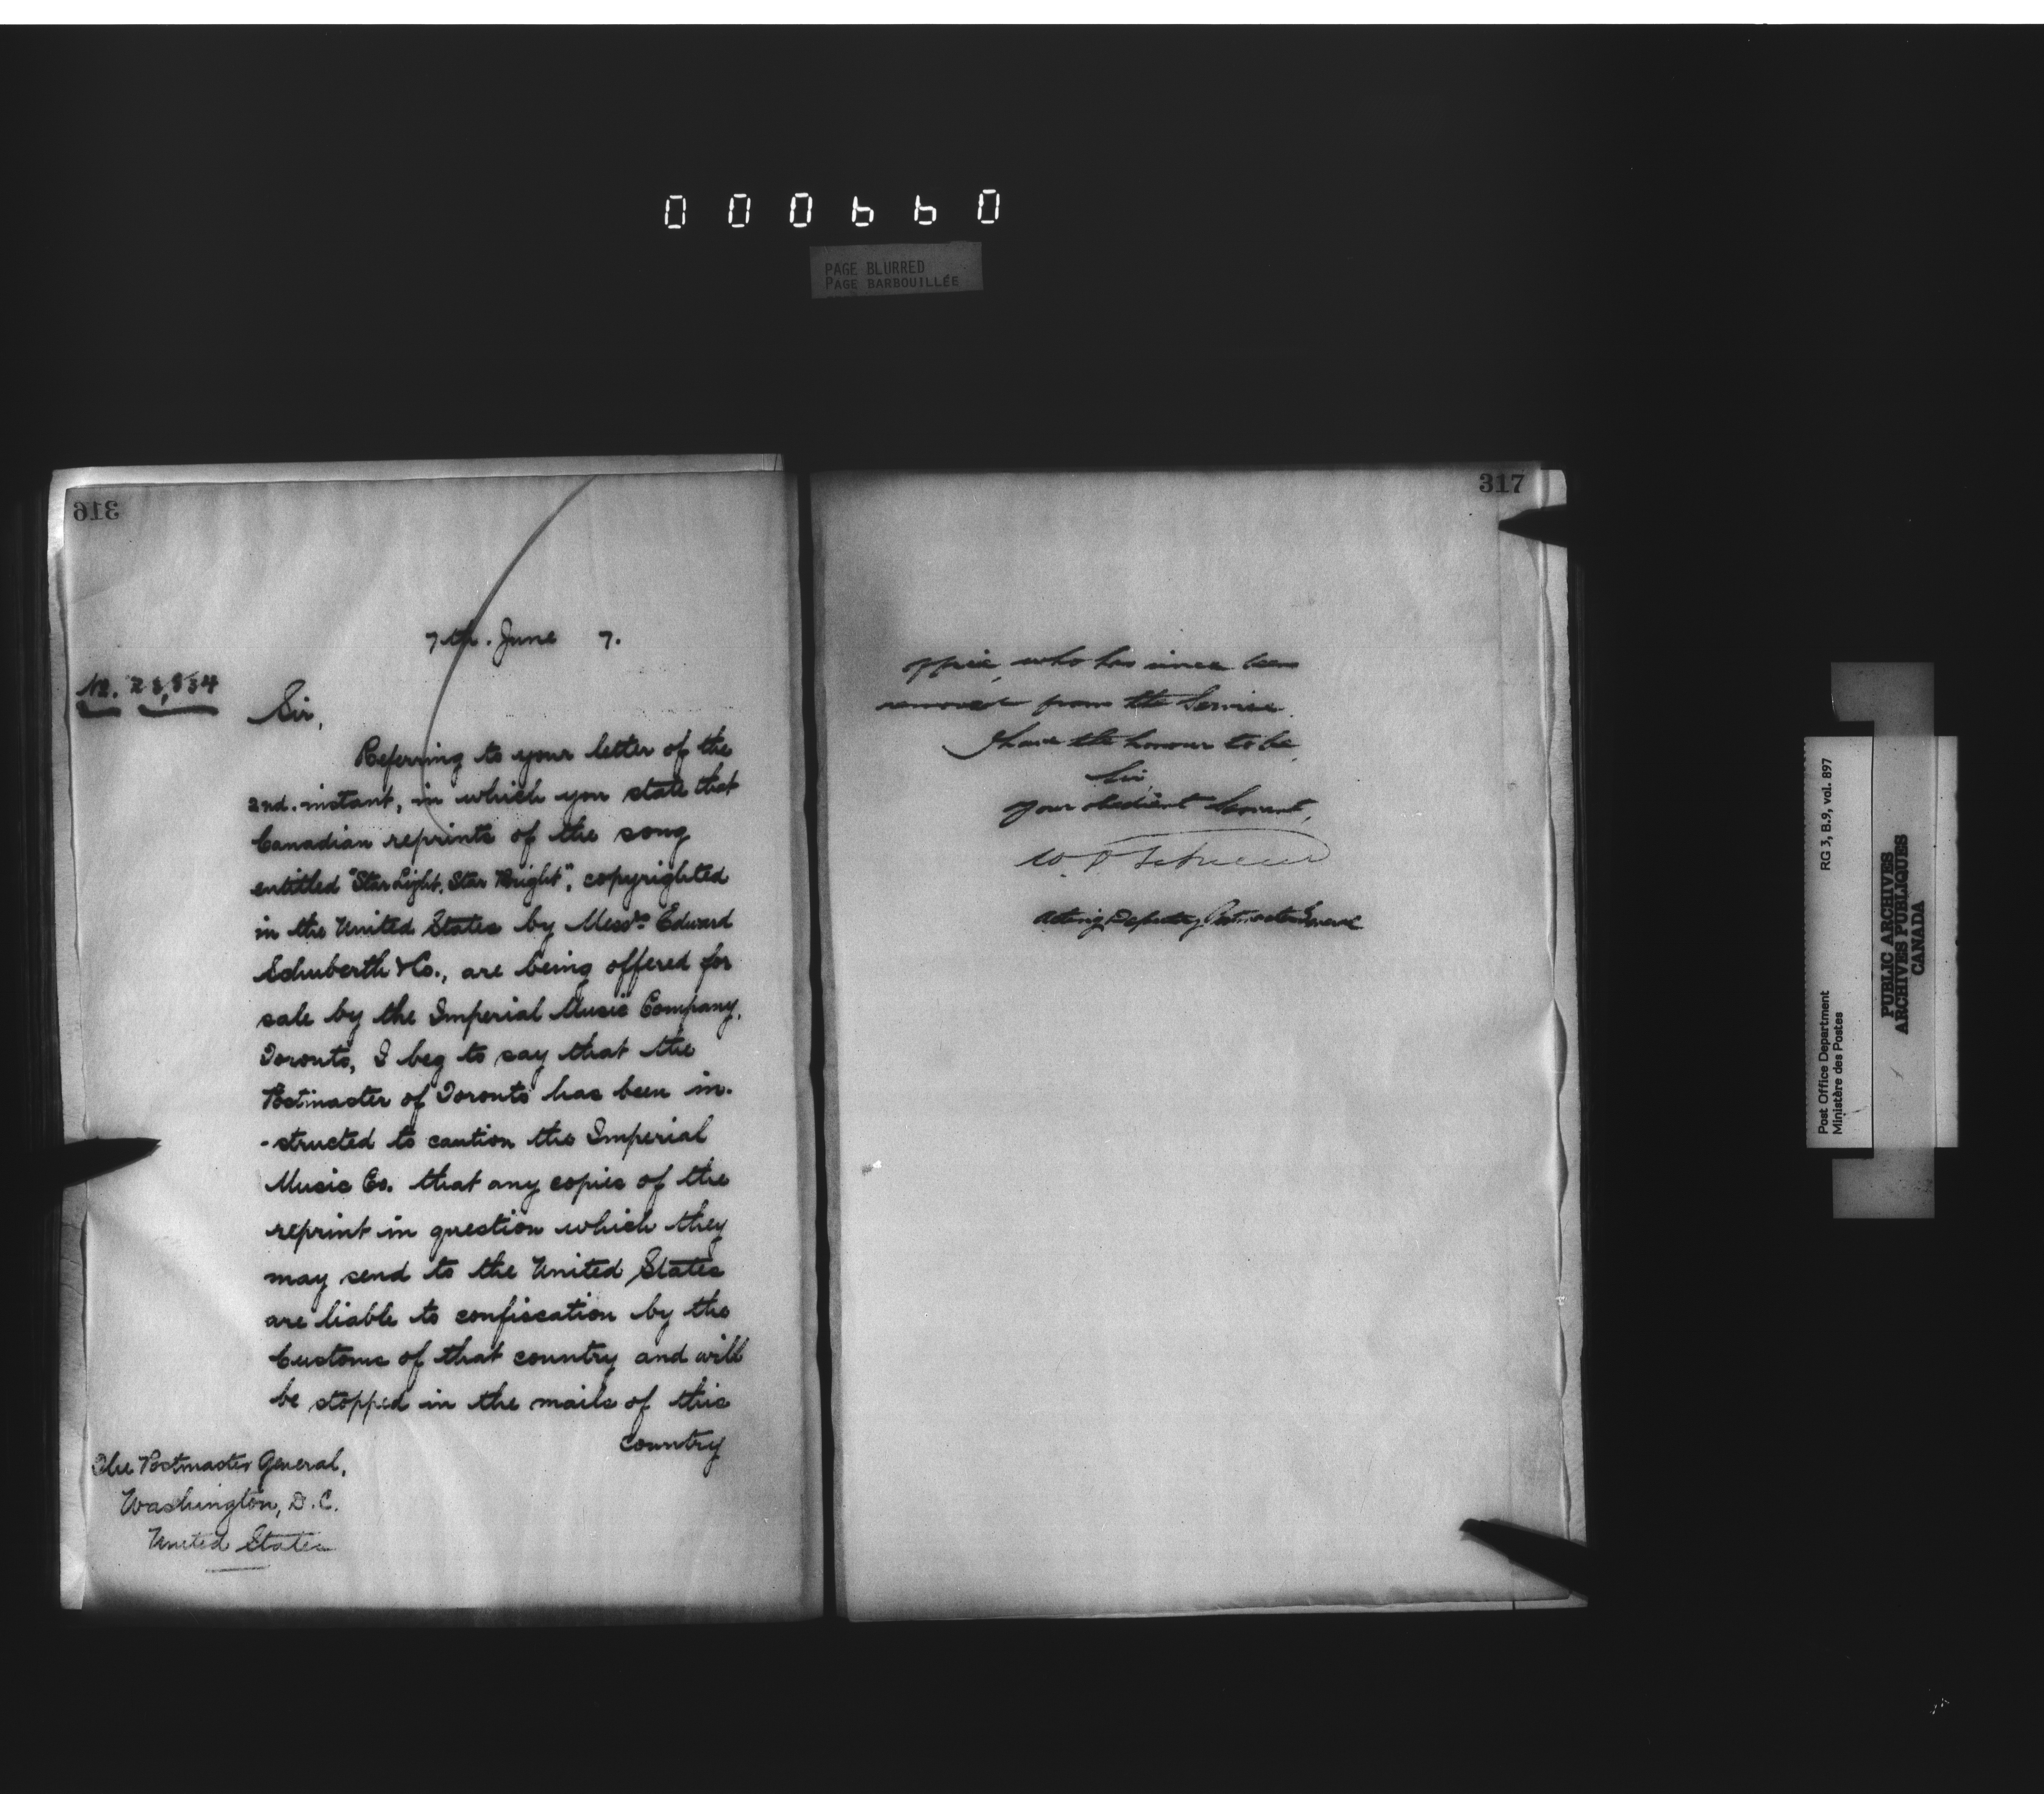 000660
PAGE BLURRED
PAGE BARBOUILLÉE
316
7th. June 7.
No. 28,834
Sir,
Referring to your letter of the
2nd. instant, in which you state that
Canadian reprints of the song
entitled "Star Light, Star Bright", copyrighted
in the United States by Messrs Edward
Schuberth & Co., are being offered for
sale by the Imperial Music Company,
Toronto, I beg to say that the
Postmaster of Toronto has been in-
-structed to caution the Imperial
Music Co. that any copies of the
reprint in question which they
may send to the United States
are liable to confiscation by the
Customs of that country and will
be stopped in the mails of this
country
The Postmaster General,
Washington, D.C.
United States
317
office, who has since been
removed from the Service.
I have the honour to be,
Sir,
Your obedient Servant,
W.
Acting Deputy Postmaster General
Post Office Department
Ministère des Postes
RG 3, B.9, vol. 897
PUBLIC ARCHIVES
ARCHIVES PUBLIQUES
CANADA